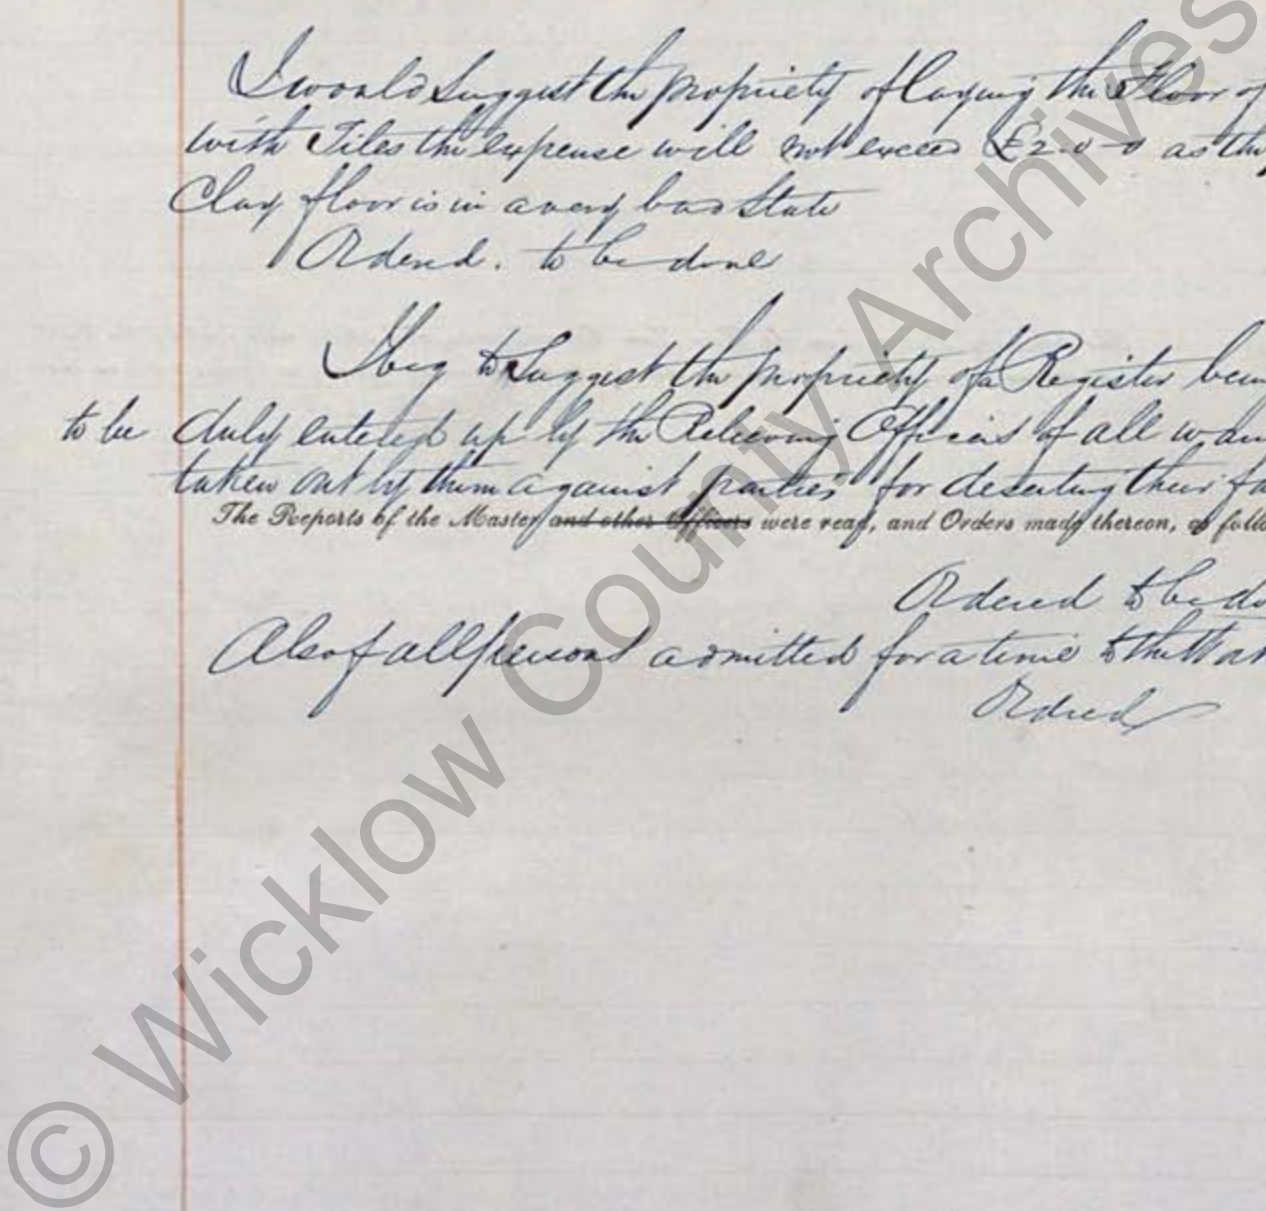 I would Suggest the propriety of laying the Floor of
with Tiles the expense will not exceed £2-0-0 as the
Clay floor is in a very bad State
Ordered. to be done
I beg to Suggest the propriety of a Register bein
to be duly entered up by the Relieving Officers of all warr
taken out by them against parties for deserting their fa
The Reports of the Master and other Officers were read, and Orders made thereon, as follo
Ordered to be do
Also of all persons admitted for a time to the Wor
Ordred
© Wicklow County Archives